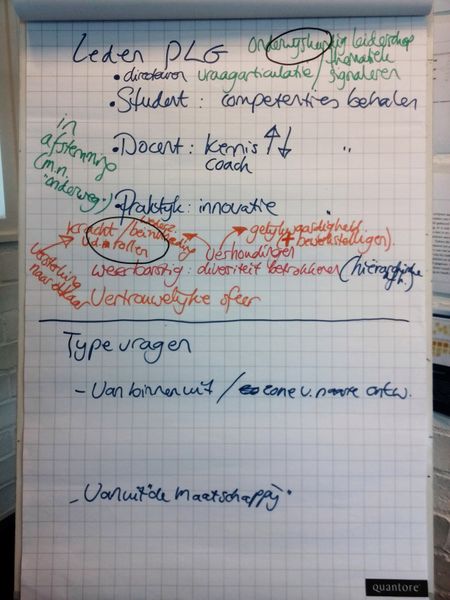 Leden PLG
Onderwijskundig leiderschap
thematiek
• directeuren vraagarticulatie / signaleren
• Student : competenties behalen
in
afstemming
(m.n.
"onderweg")
• Docent : Kennis ↑↓ "
coach
• Praktijk : innovatie
Kracht / beinvloeding
v.d. rollen
Verhoudingen
gelijkwaardigheid
(+ bewerkstelligen).
Versterking
naar elkaar
weerbarstig : diversiteit betrokkenen (hiërarchische
Vertrouwelijke sfeer
Type vragen
- Van binnenuit /
- Vanuit de maatschappij
quantore